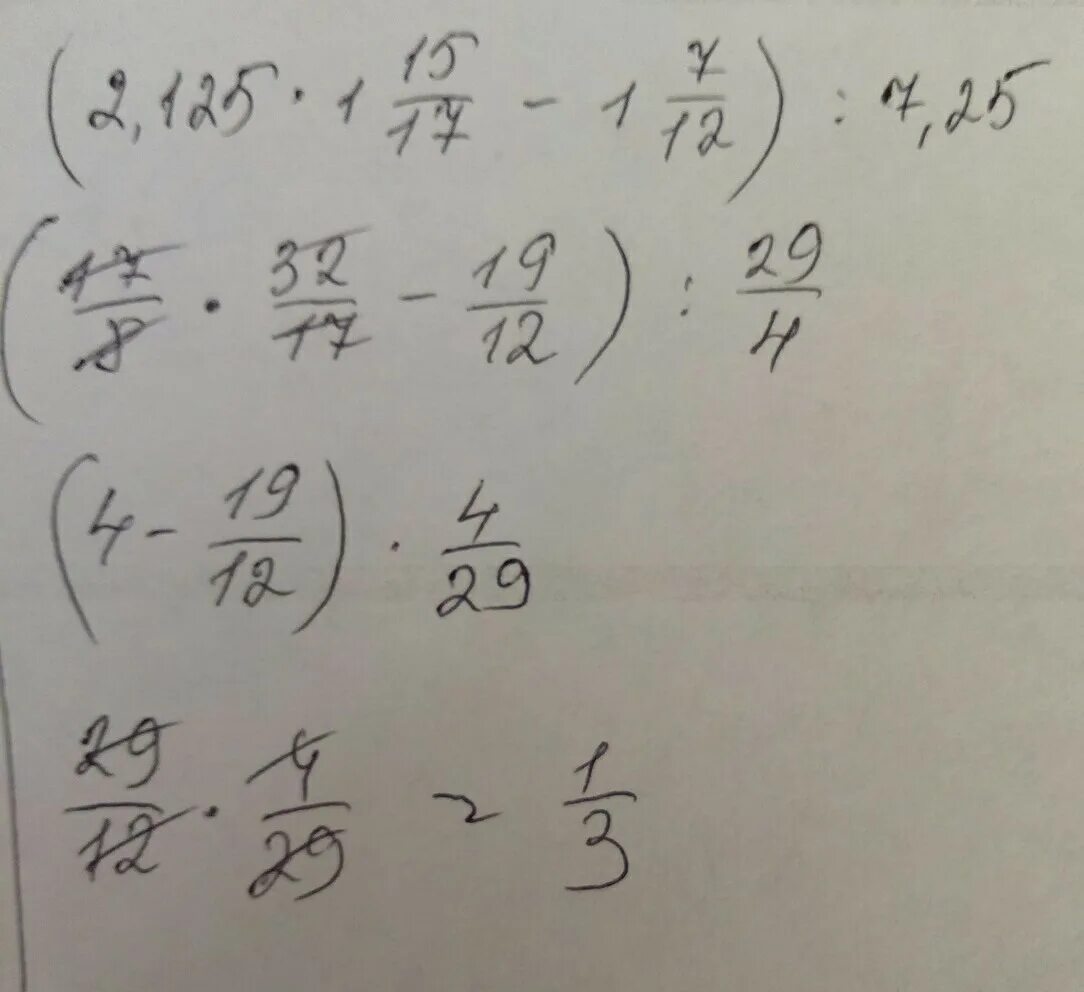 (2,125 · 1 15/17 - 1 7/12) : 7,25
(17/8 · 32/17 - 19/12) : 29/4
(4 - 19/12) · 4/29
29/12 · 4/29 = 1/3